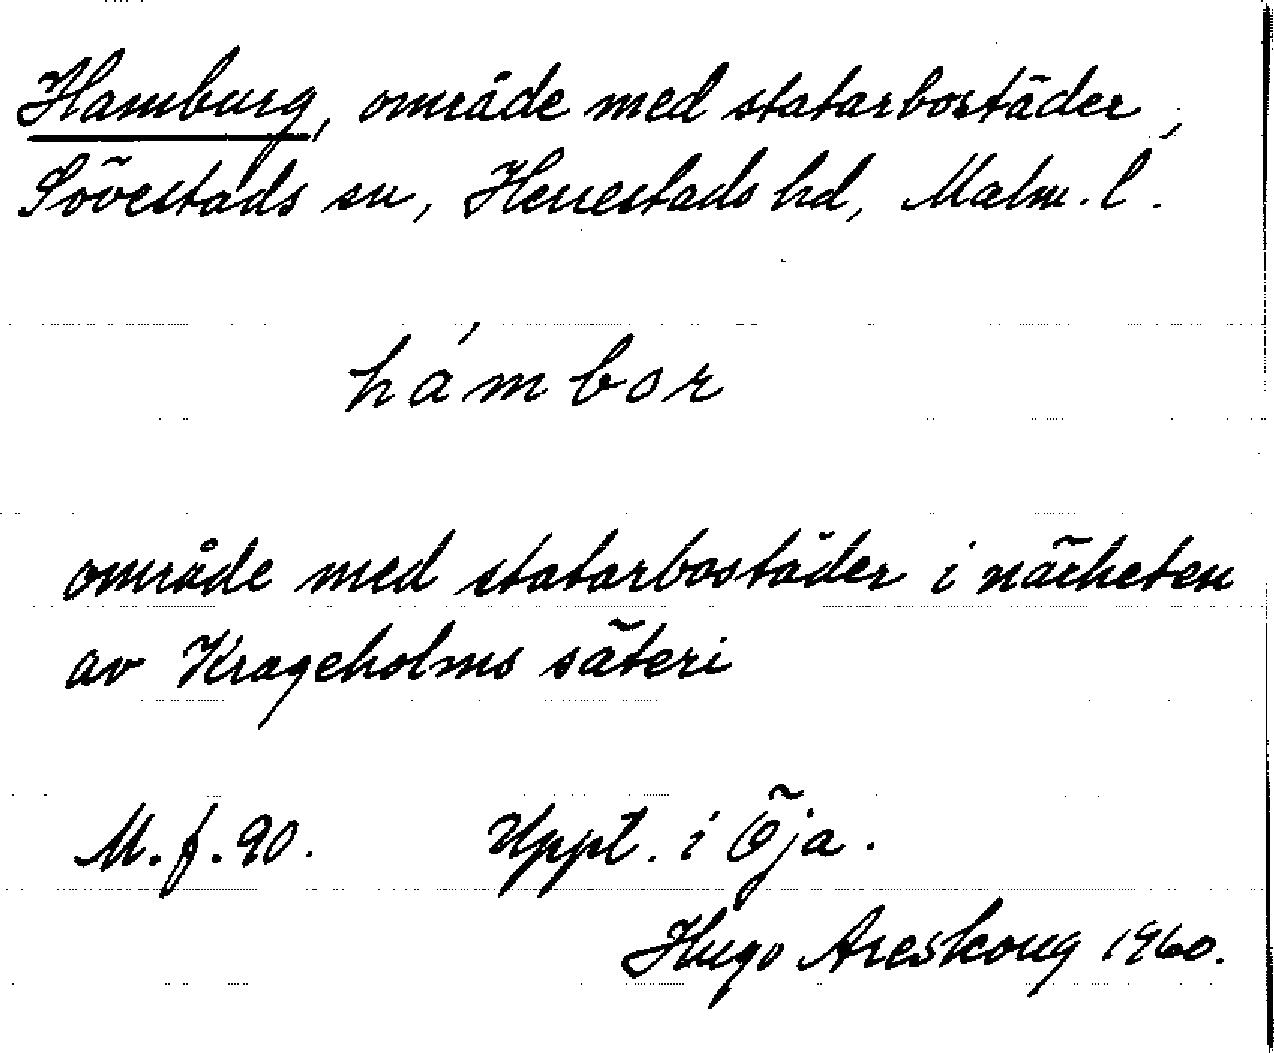 Hamburg, område med statarbostäder,
Sövestads sn, Herrestads hd, Malm. l.
hámbor
område med statarbostäder i närheten
av Krageholms säteri
M.f. 90. Uppt. i Öja.
Hugo Areskoug 1960.